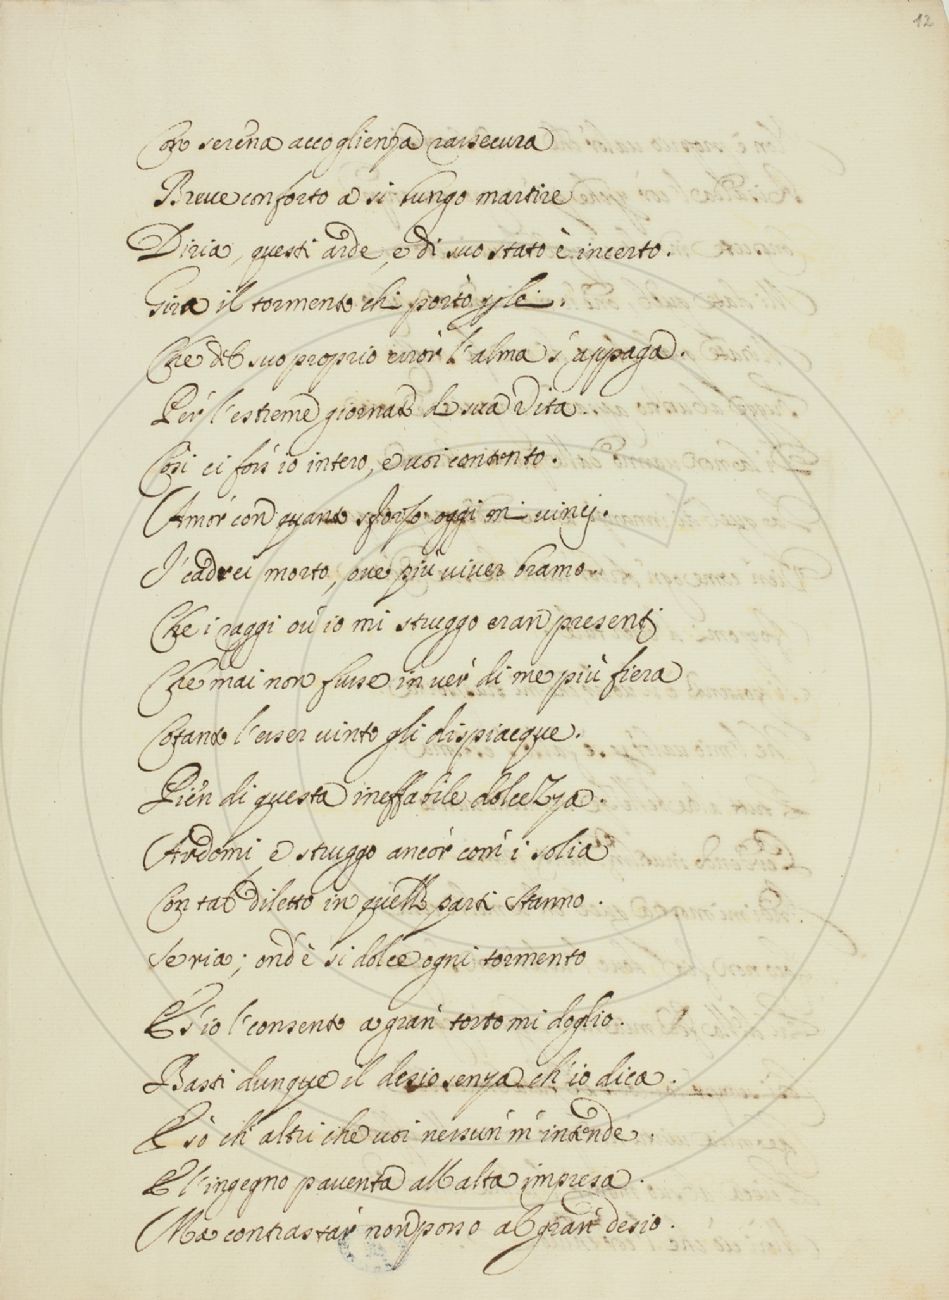 12
Con serena accoglienza rassecura
Breve conforto a si lungo martire
Diria, questi arde, e di suo stato è incerto.
Gira il tormento ch'i porto
Che del suo proprio error l'alma s'appaga.
Per l'estreme giornate de sua vita
Cosi ci fors' io intero, e voi contento.
Amor con quanto sforzo oggi mi vinci.
I' cadrei morto, ove più viver bramo.
Che i raggi ou' io mi struggo eran presenti
Che mai non fusse in ver' di me più fiera
Cotanto l'esser vinto gli dispiacque.
Pien di questa ineffabile dolcezza.
Ardomi, e struggo ancor com' i solia
Con tal diletto in quelle parti stanno.
Seria; ond'è si dolce ogni tormento
E s'io l'consento a gran' torto mi doglio.
Basti dunque il desio senza ch'io dica.
E sò ch'altri che voi nessun' m'intende.
E l'ingegno paventa all'alta impresa.
Ma contrastar' non posso al gran' desio.